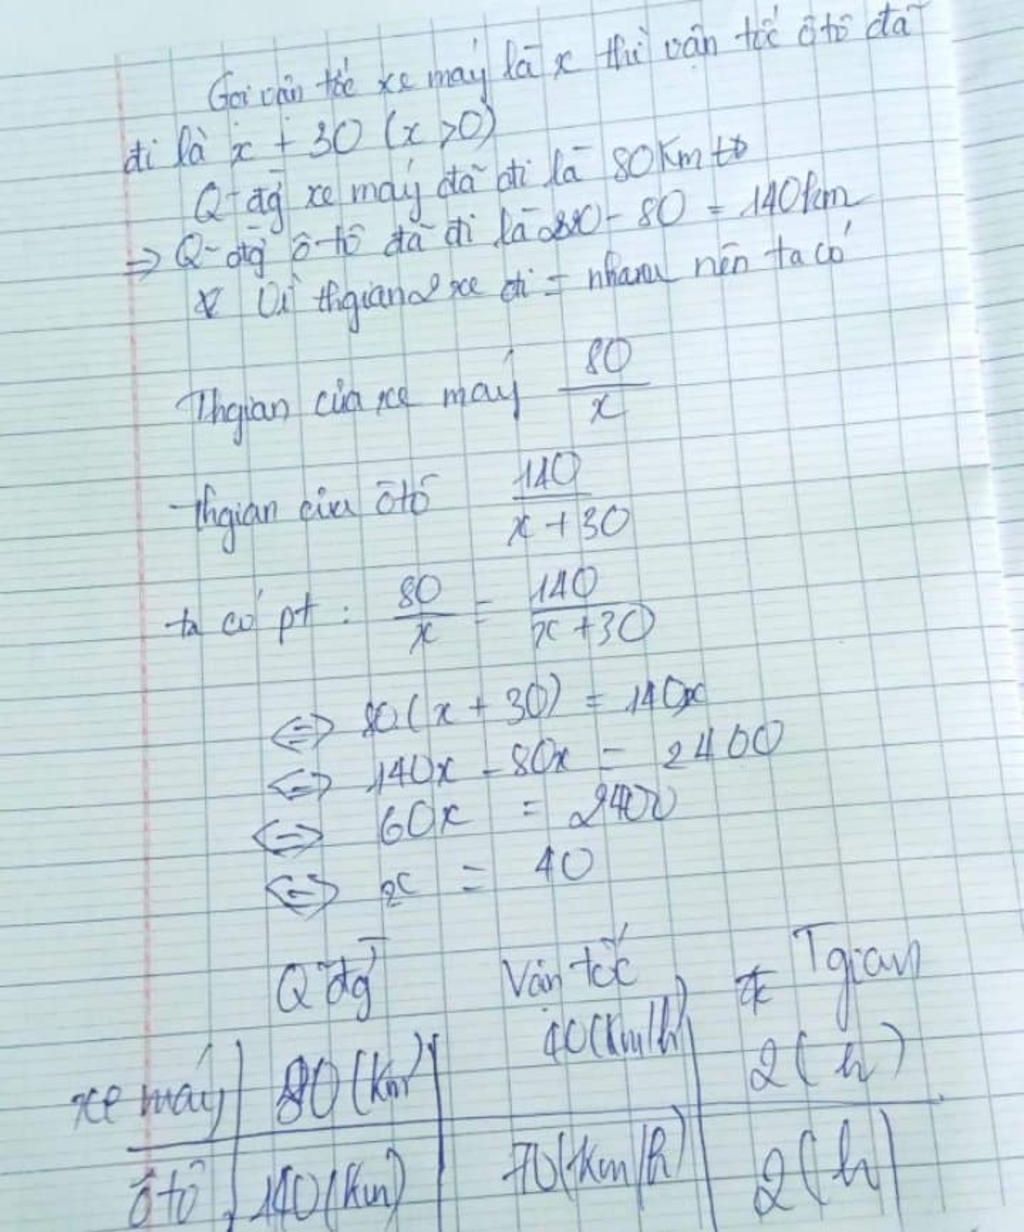 Gọi vận tốc xe máy là x thì vận tốc ôtô đã
đi là x + 30 (x >0)
Q-đg xe máy đã đi là 80km
=> Q-đg ô-tô đã đi là 220 - 80 = 140km
Vì thgian 2 xe đi = nhau nên ta có
Thgian của xe máy 80/x
Thgian của ôtô 140/(x + 30)
ta có pt : 80/x = 140/(x + 30)
<=> 80(x + 30) = 140x
<=> 140x - 80x = 2400
<=> 60x = 2400
<=> x = 40
Q đg Vận tốc Tgian
xe máy 80(km) 40(km/h) 2(h)
ôtô 140(km) 70(km/h) 2(h)